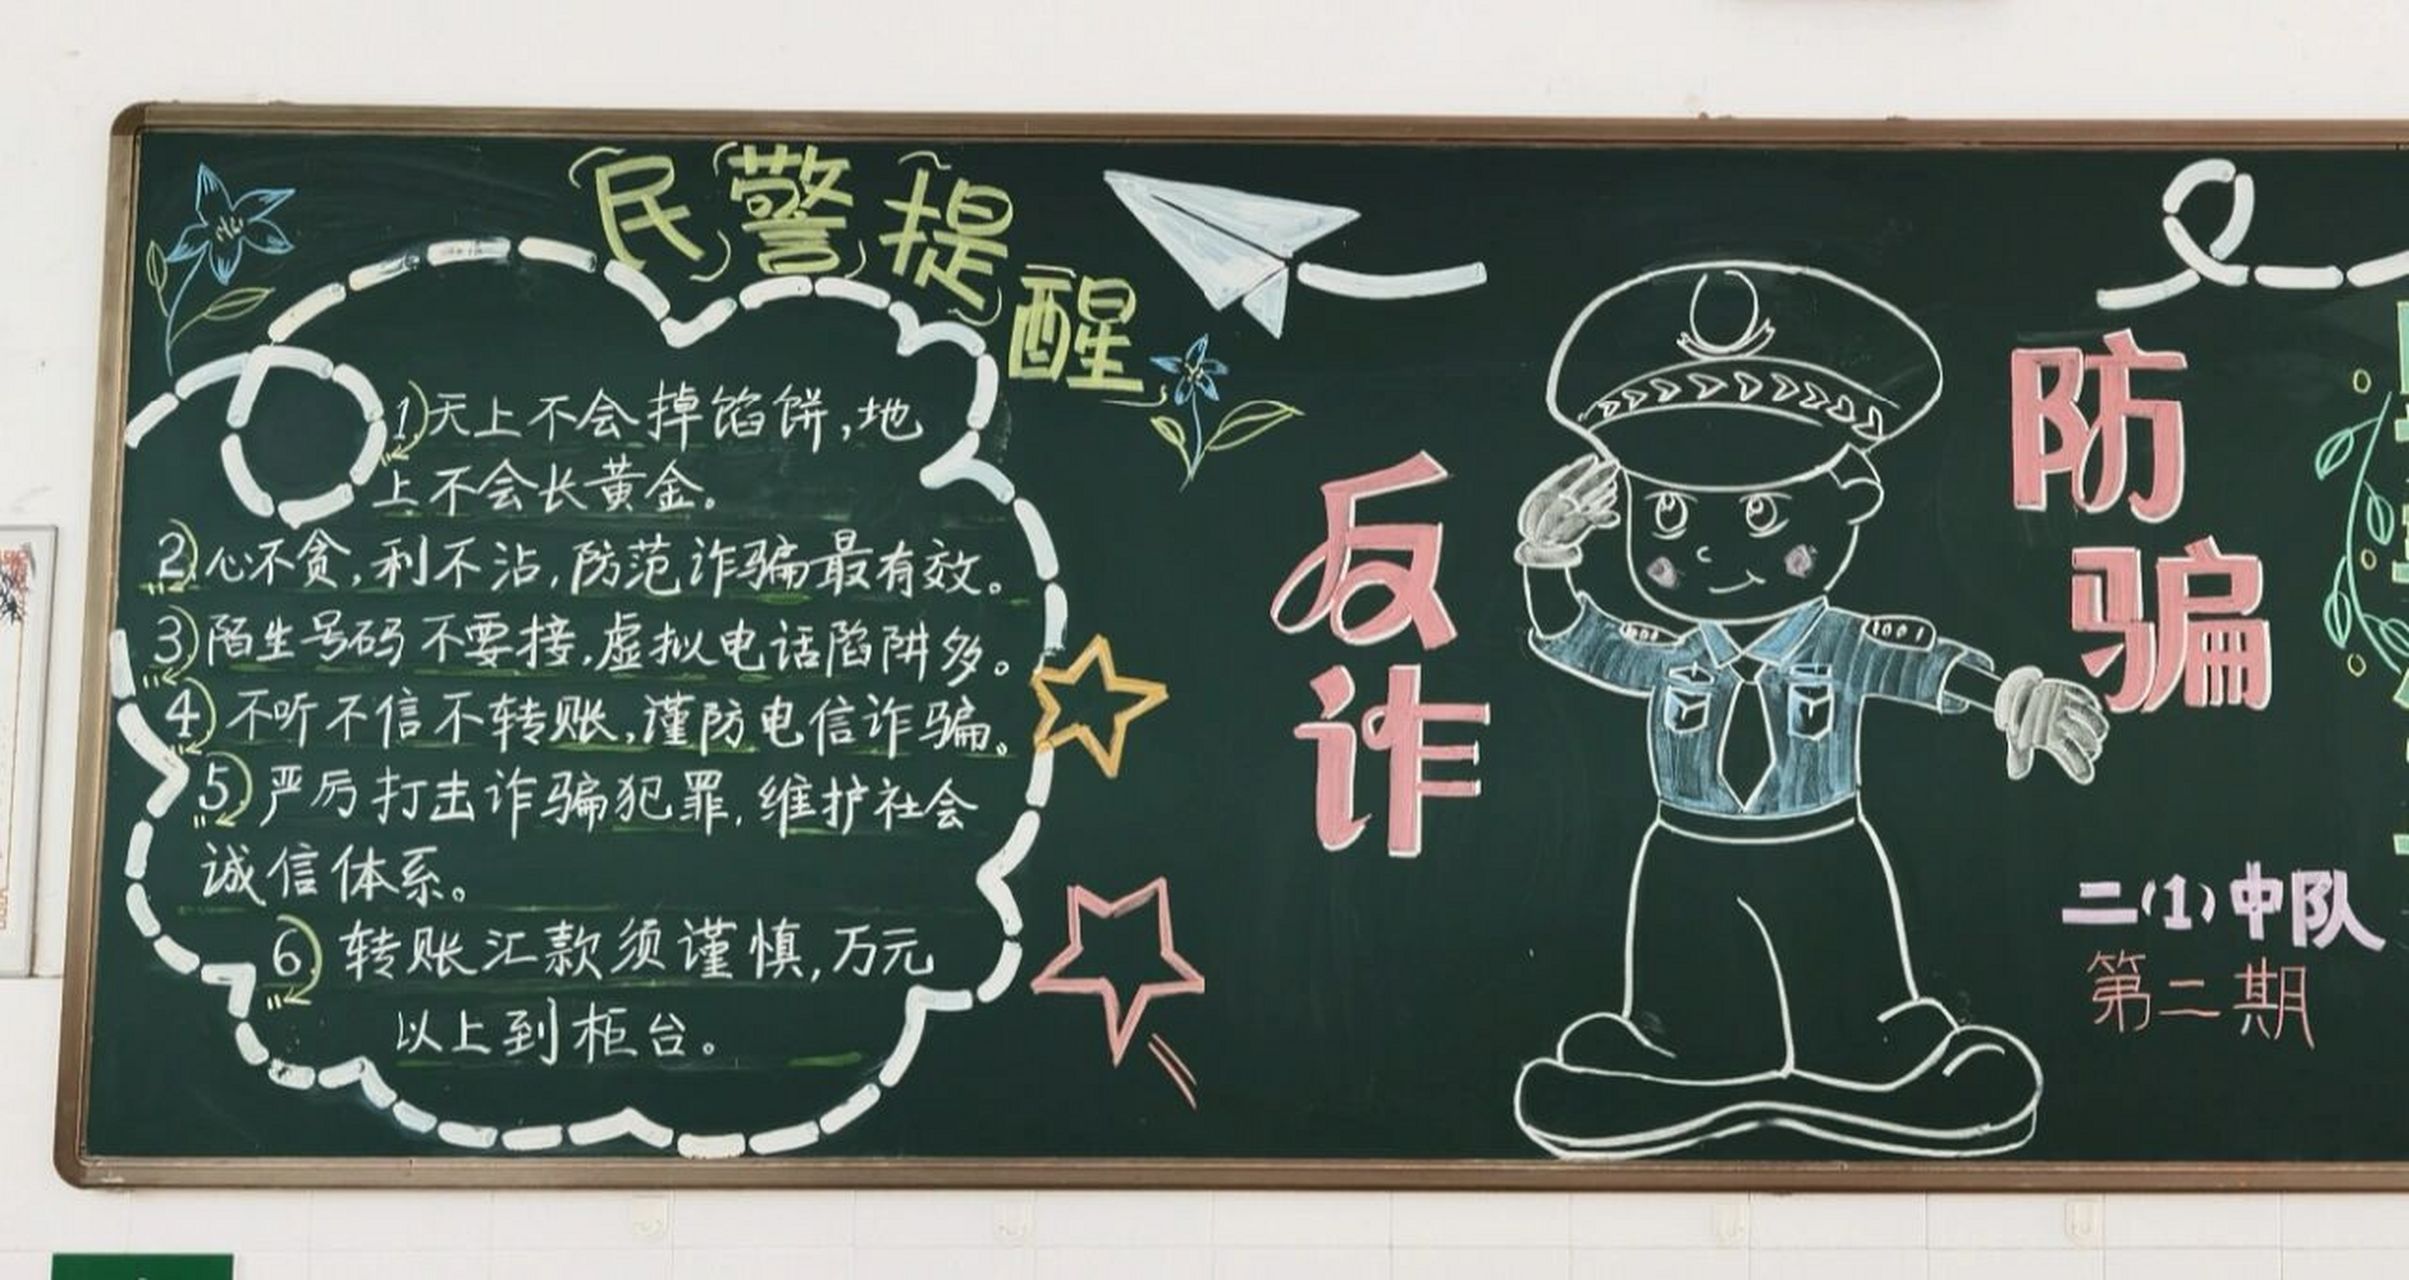 民警提醒
1)天上不会掉馅饼,地
上不会长黄金。
2)心不贪,利不沾,防范诈骗最有效。
3)陌生号码不要接,虚拟电话陷阱多。
4)不听不信不转账,谨防电信诈骗。
5)严厉打击诈骗犯罪,维护社会
诚信体系。
6)转账汇款须谨慎,万元
以上到柜台。
反诈
防骗
二(1)中队
第二期